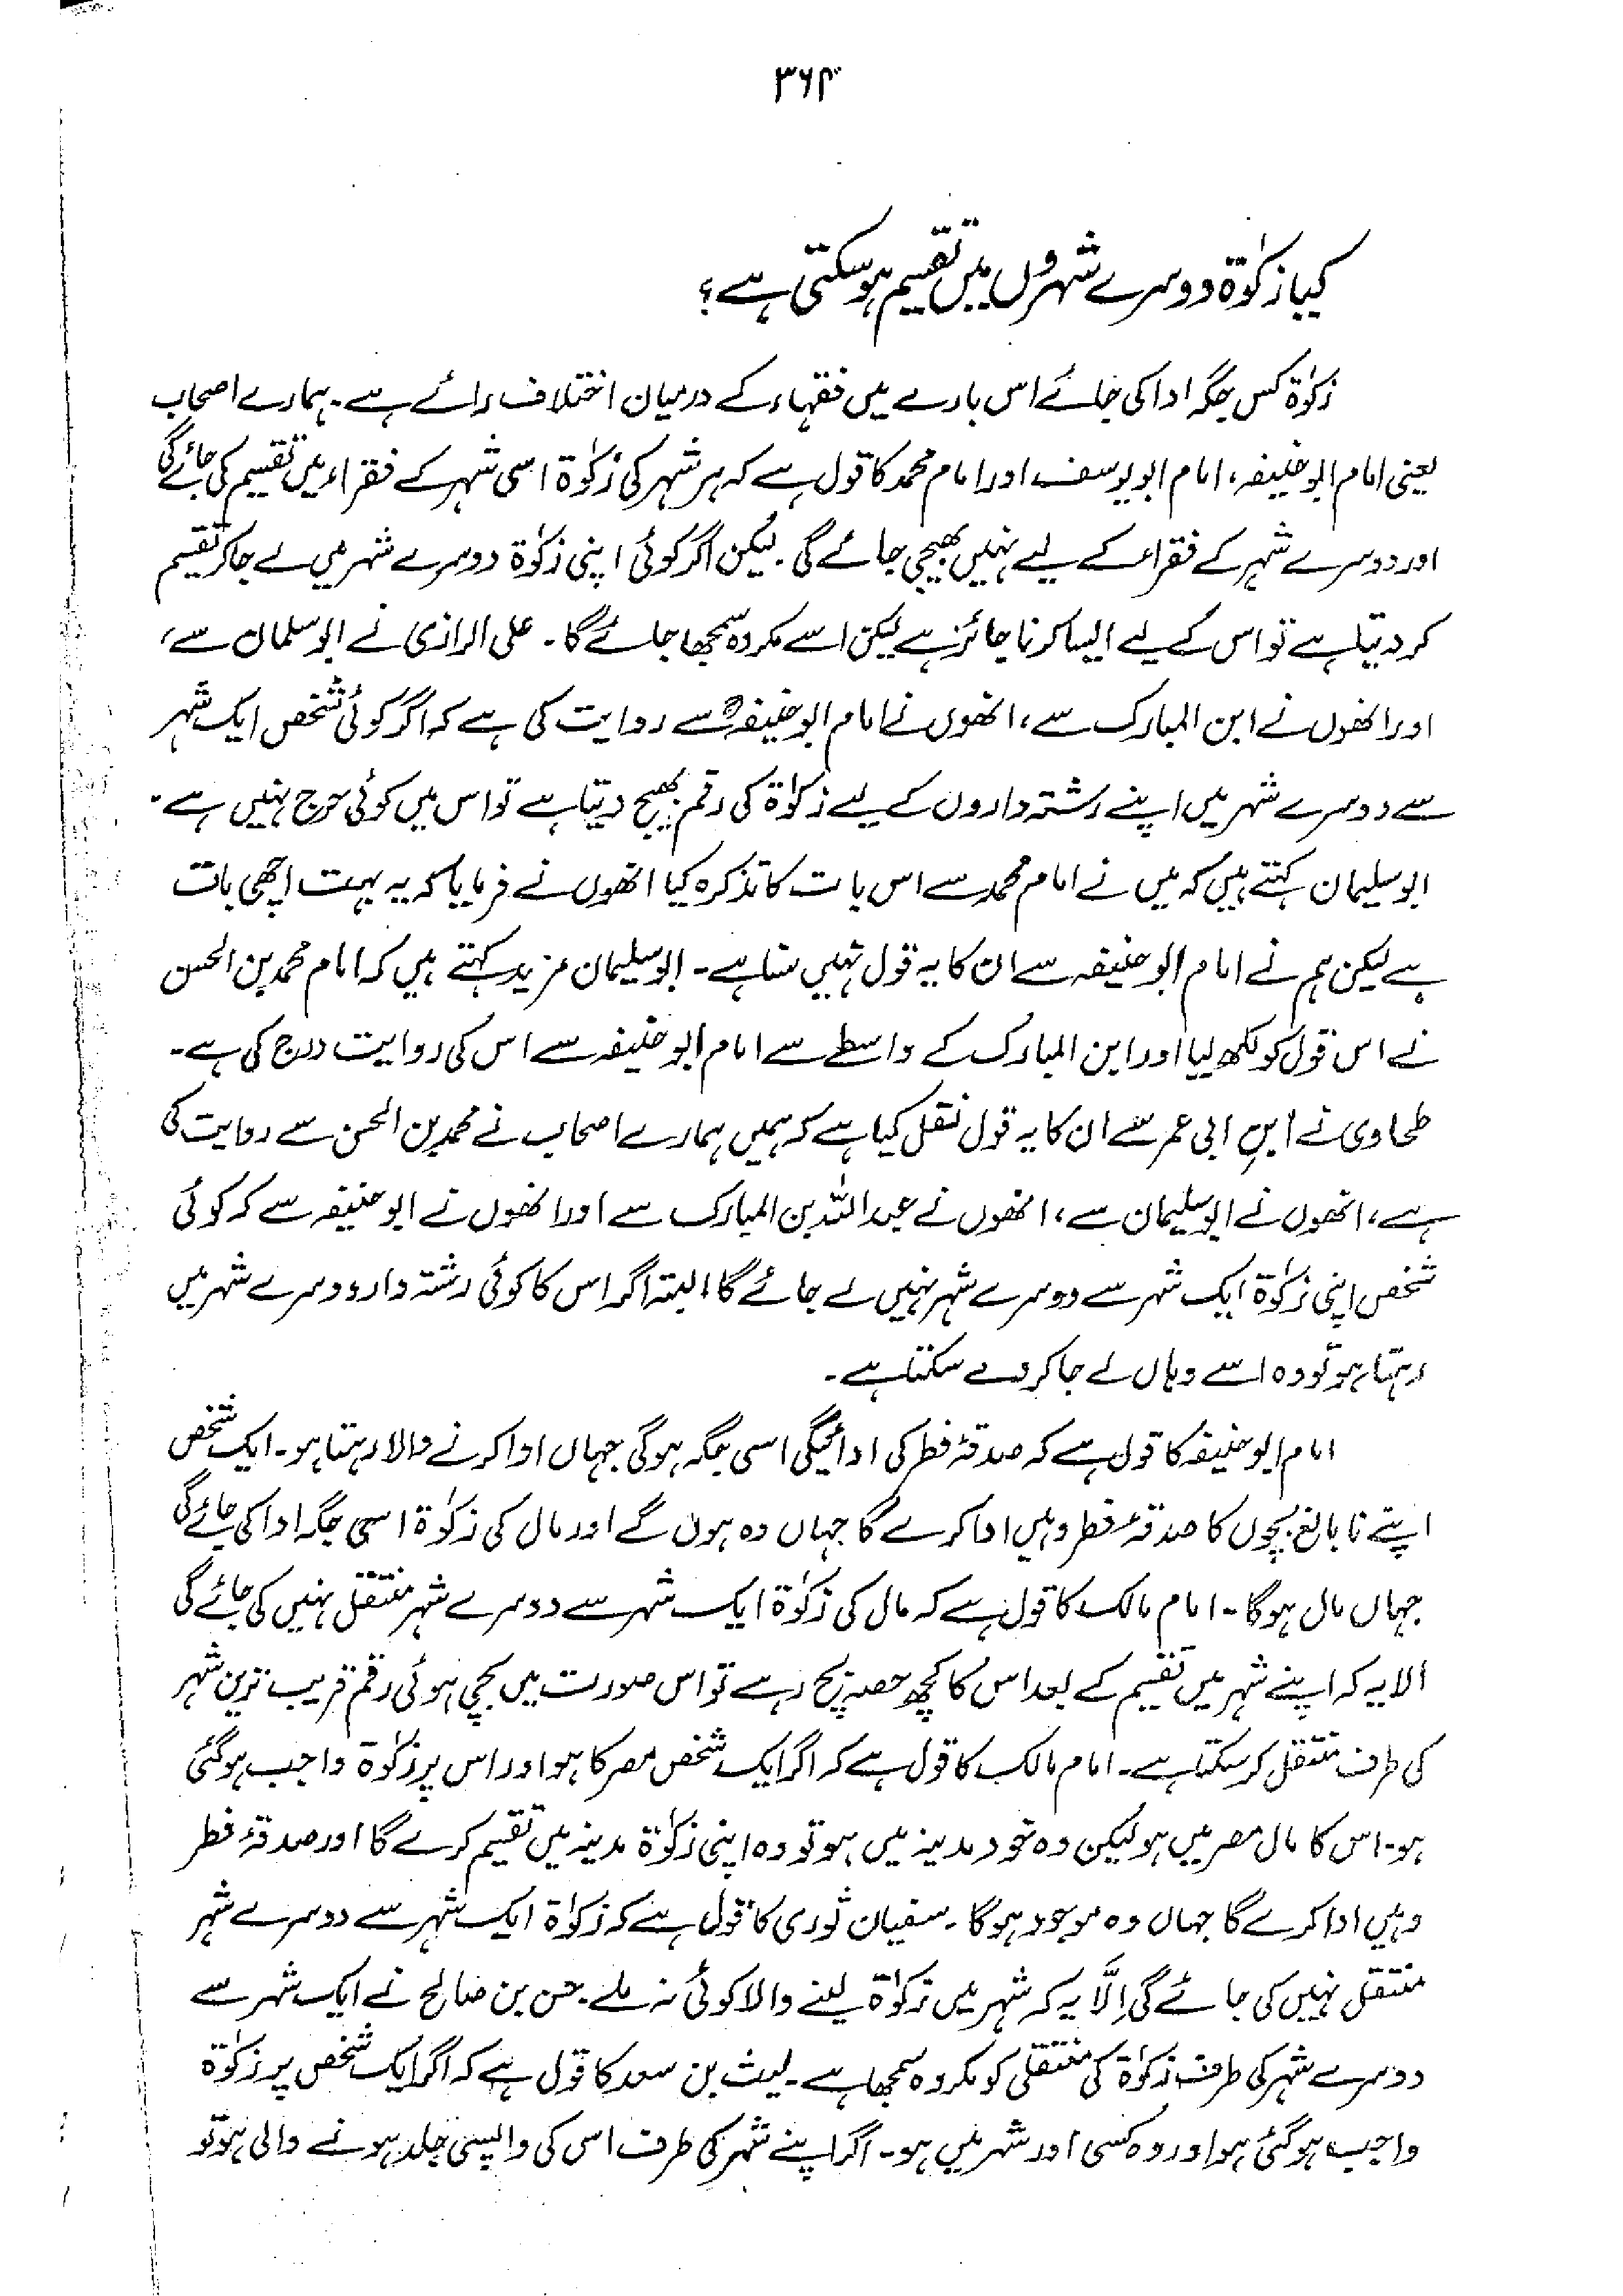 ۳۶۴
کیا زکوٰۃ دوسرے شہروں میں تقسیم ہو سکتی ہے؟
زکوٰۃ کس جگہ ادا کی جائے اس بارے میں فقہاء کے درمیان اختلاف رائے ہے۔ ہمارے اصحاب
یعنی امام ابو حنیفہ، امام ابو یوسف اور امام محمد کا قول ہے کہ ہر شہر کی زکوٰۃ اسی شہر کے فقراء میں تقسیم کی جائے گی
اور دوسرے شہر کے فقراء کے لیے نہیں بھیجی جائے گی۔ لیکن اگر کوئی اپنی زکوٰۃ دوسرے شہر میں لے جا کر تقسیم
کر دیتا ہے تو اس کے لیے ایسا کرنا جائز ہے لیکن اسے مکروہ سمجھا جائے گا۔ علی الرازی نے ابو سلمان سے،
اور انھوں نے ابن المبارک سے، انھوں نے امام ابو حنیفہؒ سے روایت کی ہے کہ اگر کوئی شخص ایک شہر
سے دوسرے شہر میں اپنے رشتہ داروں کے لیے زکوٰۃ کی رقم بھیج دیتا ہے تو اس میں کوئی حرج نہیں ہے۔
ابو سلیمان کہتے ہیں کہ میں نے امام محمد سے اس بات کا تذکرہ کیا انھوں نے فرمایا کہ یہ بہت اچھی بات
ہے لیکن ہم نے امام ابو حنیفہ سے ان کا یہ قول نہیں سنا ہے۔ ابو سلیمان مزید کہتے ہیں کہ امام محمد بن الحسن
نے اس قول کو لکھ لیا اور ابن المبارک کے واسطے سے امام ابو حنیفہ سے اس کی روایت درج کی ہے۔
طحاوی نے ابنِ ابی عمر سے ان کا یہ قول نقل کیا ہے کہ ہمیں ہمارے اصحاب نے محمد بن الحسن سے روایت کی
ہے، انھوں نے ابو سلیمان سے، انھوں نے عبداللہ بن المبارک سے اور انھوں نے ابو حنیفہ سے کہ کوئی
شخص اپنی زکوٰۃ ایک شہر سے دوسرے شہر نہیں لے جائے گا، البتہ اگر اس کا کوئی رشتہ دار دوسرے شہر میں
رہتا ہو تو وہ اسے وہاں لے جا کر دے سکتا ہے۔
امام ابو حنیفہ کا قول ہے کہ صدقۂ فطر کی ادائیگی اسی جگہ ہو گی جہاں ادا کرنے والا رہتا ہو۔ ایک شخص
اپنے نابالغ بچوں کا صدقۂ فطر وہیں ادا کرے گا جہاں وہ ہوں گے اور مال کی زکوٰۃ اسی جگہ ادا کی جائے گی
جہاں مال ہوگا۔ امام مالک کا قول ہے کہ مال کی زکوٰۃ ایک شہر سے دوسرے شہر منتقل نہیں کی جائے گی
الا یہ کہ اپنے شہر میں تقسیم کے بعد اس کا کچھ حصہ بچ رہے تو اس صورت میں بچی ہوئی رقم قریب ترین شہر
کی طرف منتقل کر سکتا ہے۔ امام مالک کا قول ہے کہ اگر ایک شخص مصر کا ہو اور اس پر زکوٰۃ واجب ہو گئی
ہو۔ اس کا مال مصر میں ہو لیکن وہ خود مدینہ میں ہو تو وہ اپنی زکوٰۃ مدینہ میں تقسیم کرے گا اور صدقۂ فطر
وہیں ادا کرے گا جہاں وہ موجود ہوگا۔ سفیان ثوری کا قول ہے کہ زکوٰۃ ایک شہر سے دوسرے شہر
منتقل نہیں کی جائے گی اِلّا یہ کہ شہر میں زکوٰۃ لینے والا کوئی نہ ملے۔ حسن بن صالح نے ایک شہر سے
دوسرے شہر کی طرف زکوٰۃ کی منتقلی کو مکروہ سمجھا ہے۔ لیث بن سعد کا قول ہے کہ اگر ایک شخص پر زکوٰۃ
واجب ہو گئی ہو اور وہ کسی اور شہر میں ہو۔ اگر اپنے شہر کی طرف اس کی واپسی جلد ہونے والی ہو تو